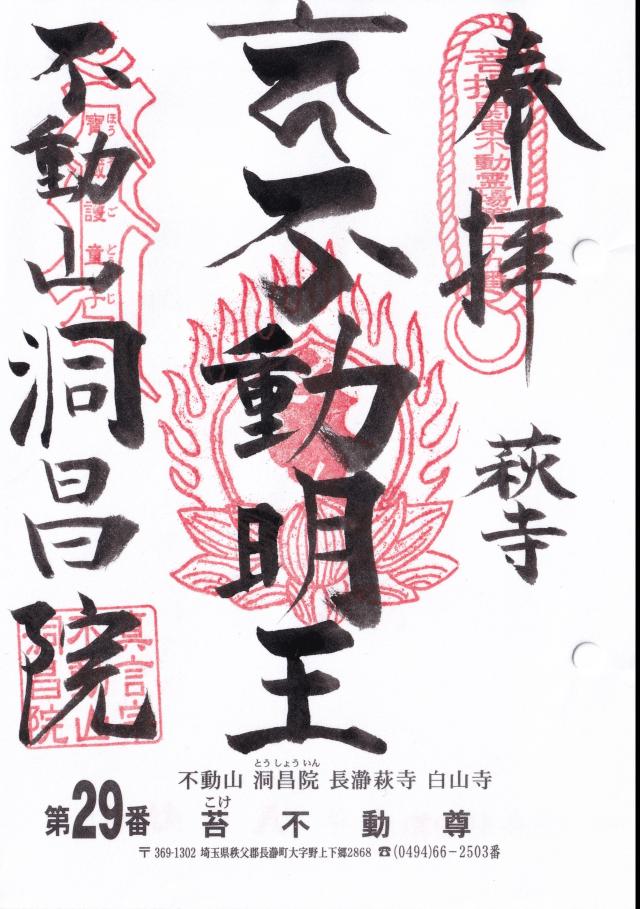 奉拝
菩提
関東不動霊場第二十九番
萩寺
不動明王
不動山洞昌院
ほう ご どうじ
護童子
真言宗
不動山
洞昌院
とうしょういん
不動山 洞昌院 長瀞萩寺 白山寺
こけ
第29番 苔不動尊
〒369-1302 埼玉県秩父郡長瀞町大字野上下郷2868 ☎(0494)66-2503番